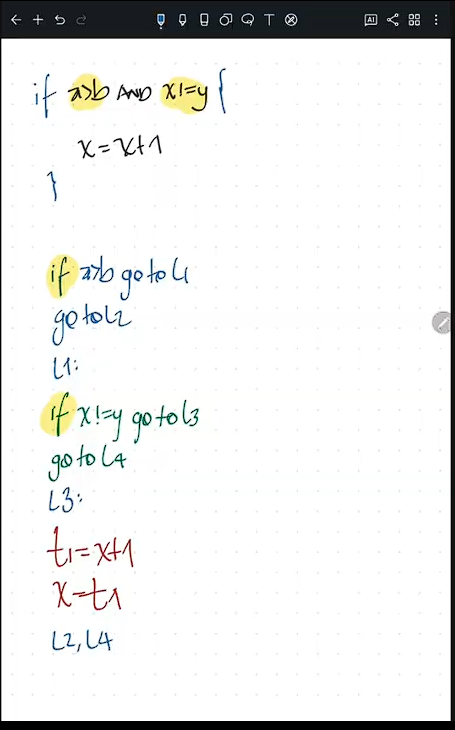 AI
if a>b AND x!=y {
x=x+1
}
if a>b goto L1
goto L2
L1:
if x!=y goto L3
goto L4
L3:
t1=x+1
x=t1
L2, L4